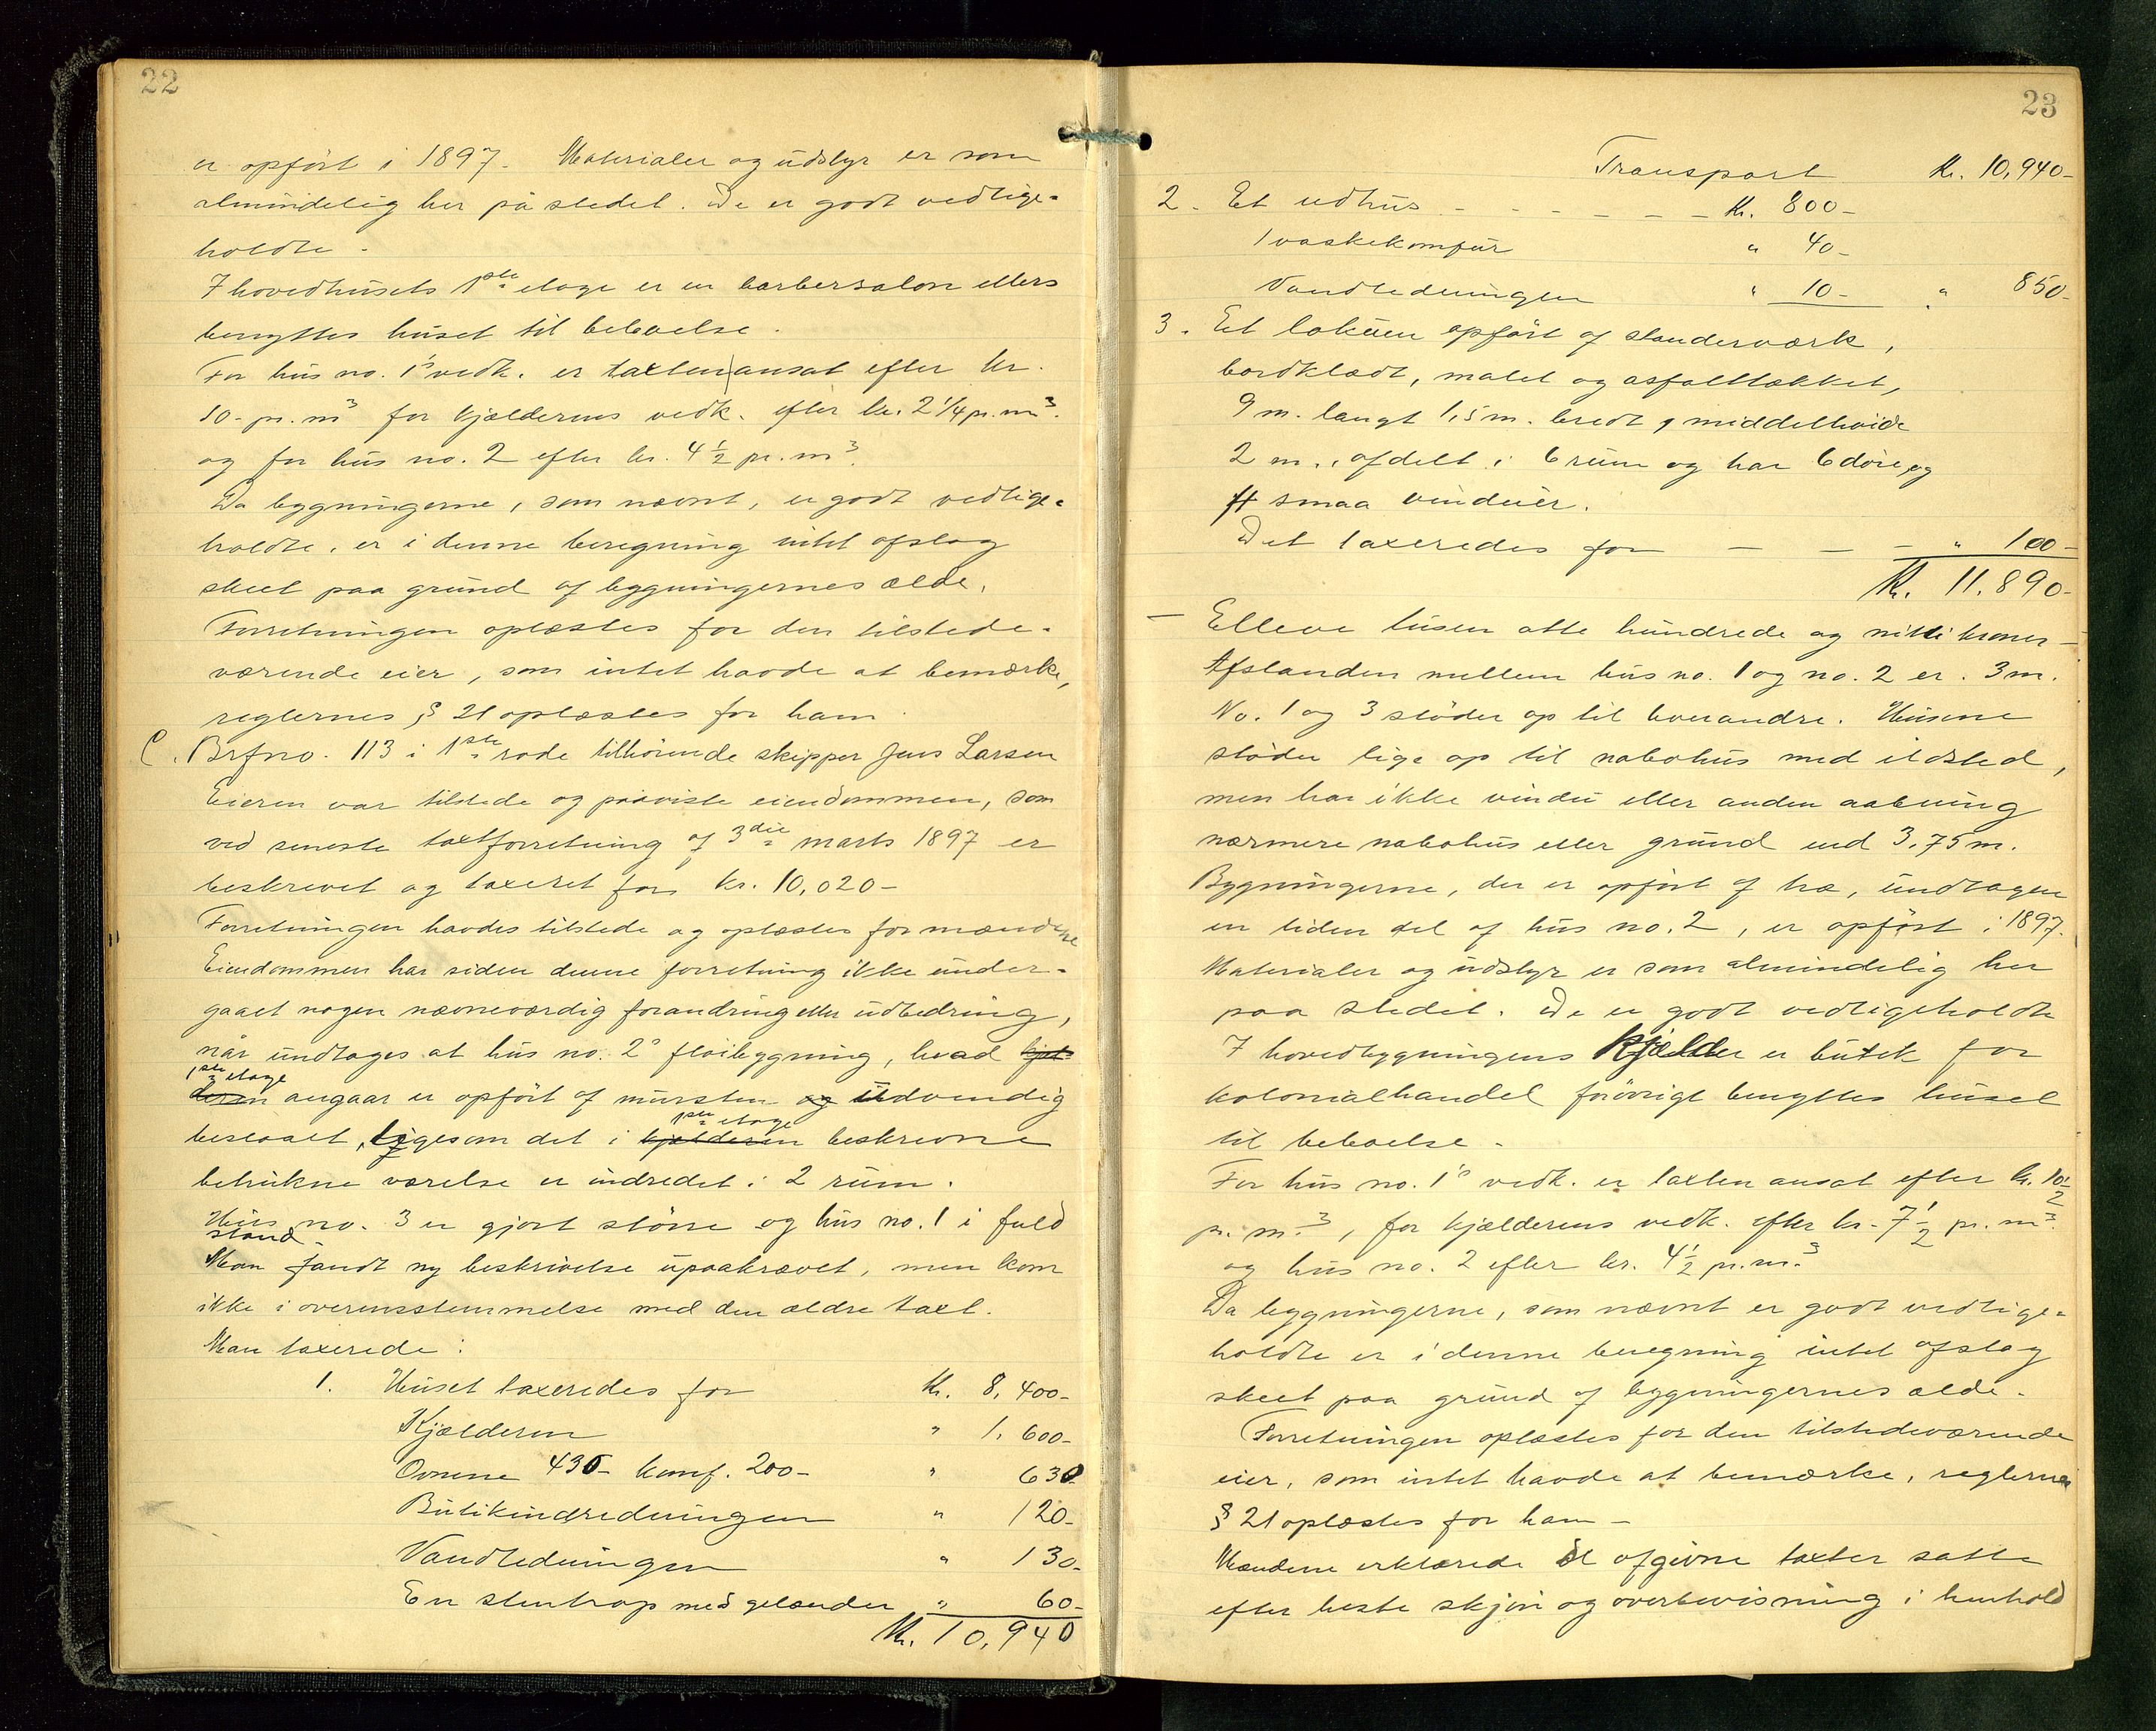 22
er opfört i 1897. Materialer og üdstyr er som
almindelig her på stedet. De er godt vedlige-
holdte.
I hovedhüsets 1ste etage er en barbersalon ellers
benyttes hüset til beboelse.
For hüs no. 1s vedk. er taxten ansat efter kr.
10- pr. m3 for kjælderens vedk. efter kr. 2 1/4 pr. m3.
og for hüs no. 2 efter kr. 4 1/2 pr. m3.
Da bygningerne, som nævnt, er godt vedlige-
holdte, er i denne beregning intet afslag
skeet paa gründ af bygningernes ælde.
Forretningen oplæstes for den tilstede-
værende eier, som intet havde at bemærke,
reglernes § 21 oplæstes for ham.
C. Brfno. 113 i 1ste rode tilhörende skipper Jens Larsen
Eieren var tilstede og paaviste eiendommen, som
ved seneste taxtforretning af 3die marts 1897 er
beskrevet og taxeret for kr. 10,020-
Forretningen havdes tilstede og oplæstes for mændene
Eiendommen har siden denne forretning ikke ünder-
gaaet nogen nævneværdig forandring eller üdbedring,
når ündtages at hüs no. 2s flöibygning, hvad kjæl-
1ste etage
deren angaar er opfört af mürsten og üdvendig
1ste etage
beslaaet, ligesom det i kjælderen beskrevne
betrükne værelse er indredet i 2 rüm.
Hüs no. 3 er gjort större og hüs no. 1 i fuld
stand.
Man fandt ny beskrivelse üpaakrævet, men kom
ikke i overensstemmelse med den ældre taxt.
Man taxerede:
1. Hüset taxeredes for Kr. 8,400-
Kjælderen " 1,600-
Ovnene 430- komf. 200- " 630
Bütikindredningen " 120-
Vandledningen " 130-
En stentrap med gelænder " 60-
Kr. 10,940
23
Transport Kr. 10,940-
2. Et udhüs - - - - - - Kr. 800-
1 vaskekomfür " 40-
Vandledningen " 10- " 850-
3. Et loküm opfört af standerværk,
bordklædt, malet og asfalttækket,
9 m. langt 1,5 m. bredt, middelhöide
2 m., afdelt i 6 rüm og har 6 döre og
4 smaa vindüer.
Det taxeredes for - - - " 100-
Kr. 11,890-
- Elleve tüsen otte hündrede og nitti kroner -
Afstanden mellem hüs no. 1 og no. 2 er. 3 m.
No. 1 og 3 stöder op til hverandre. Hüsene
stöder lige op til nabohüs med ildsted,
men har ikke vindü eller anden aabning
nærmere nabohüs eller gründ end 3,75 m.
Bygningerne, der er opfört af træ, ündtagen
en liden del af hüs no. 2, er opfört i 1897.
Materialer og üdstyr er som almindelig her
paa stedet. De er godt vedligeholdte
I hovedbygningens Kjælder er bütik for
kolonialhandel forövrigt benyttes hüset
til beboelse.
For hüs no. 1s vedk. er taxten ansat efter kr. 10 1/2
pr. m3, for kjælderens vedk. efter kr. 7 1/2 pr. m3.
og hüs no. 2 efter kr. 4 1/2 pr. m3
Da bygningerne, som nævnt er godt vedlige-
holdte er i denne beregning intet afslag
skeet paa gründ af bygningernes ælde.
Forretningen oplæstes for den tilstedeværende
eier, som intet havde at bemærke, reglernes
§ 21 oplæstes for ham -
Mændene erklærede de afgivne taxter satte
efter beste skjön og overbevisning i henhold